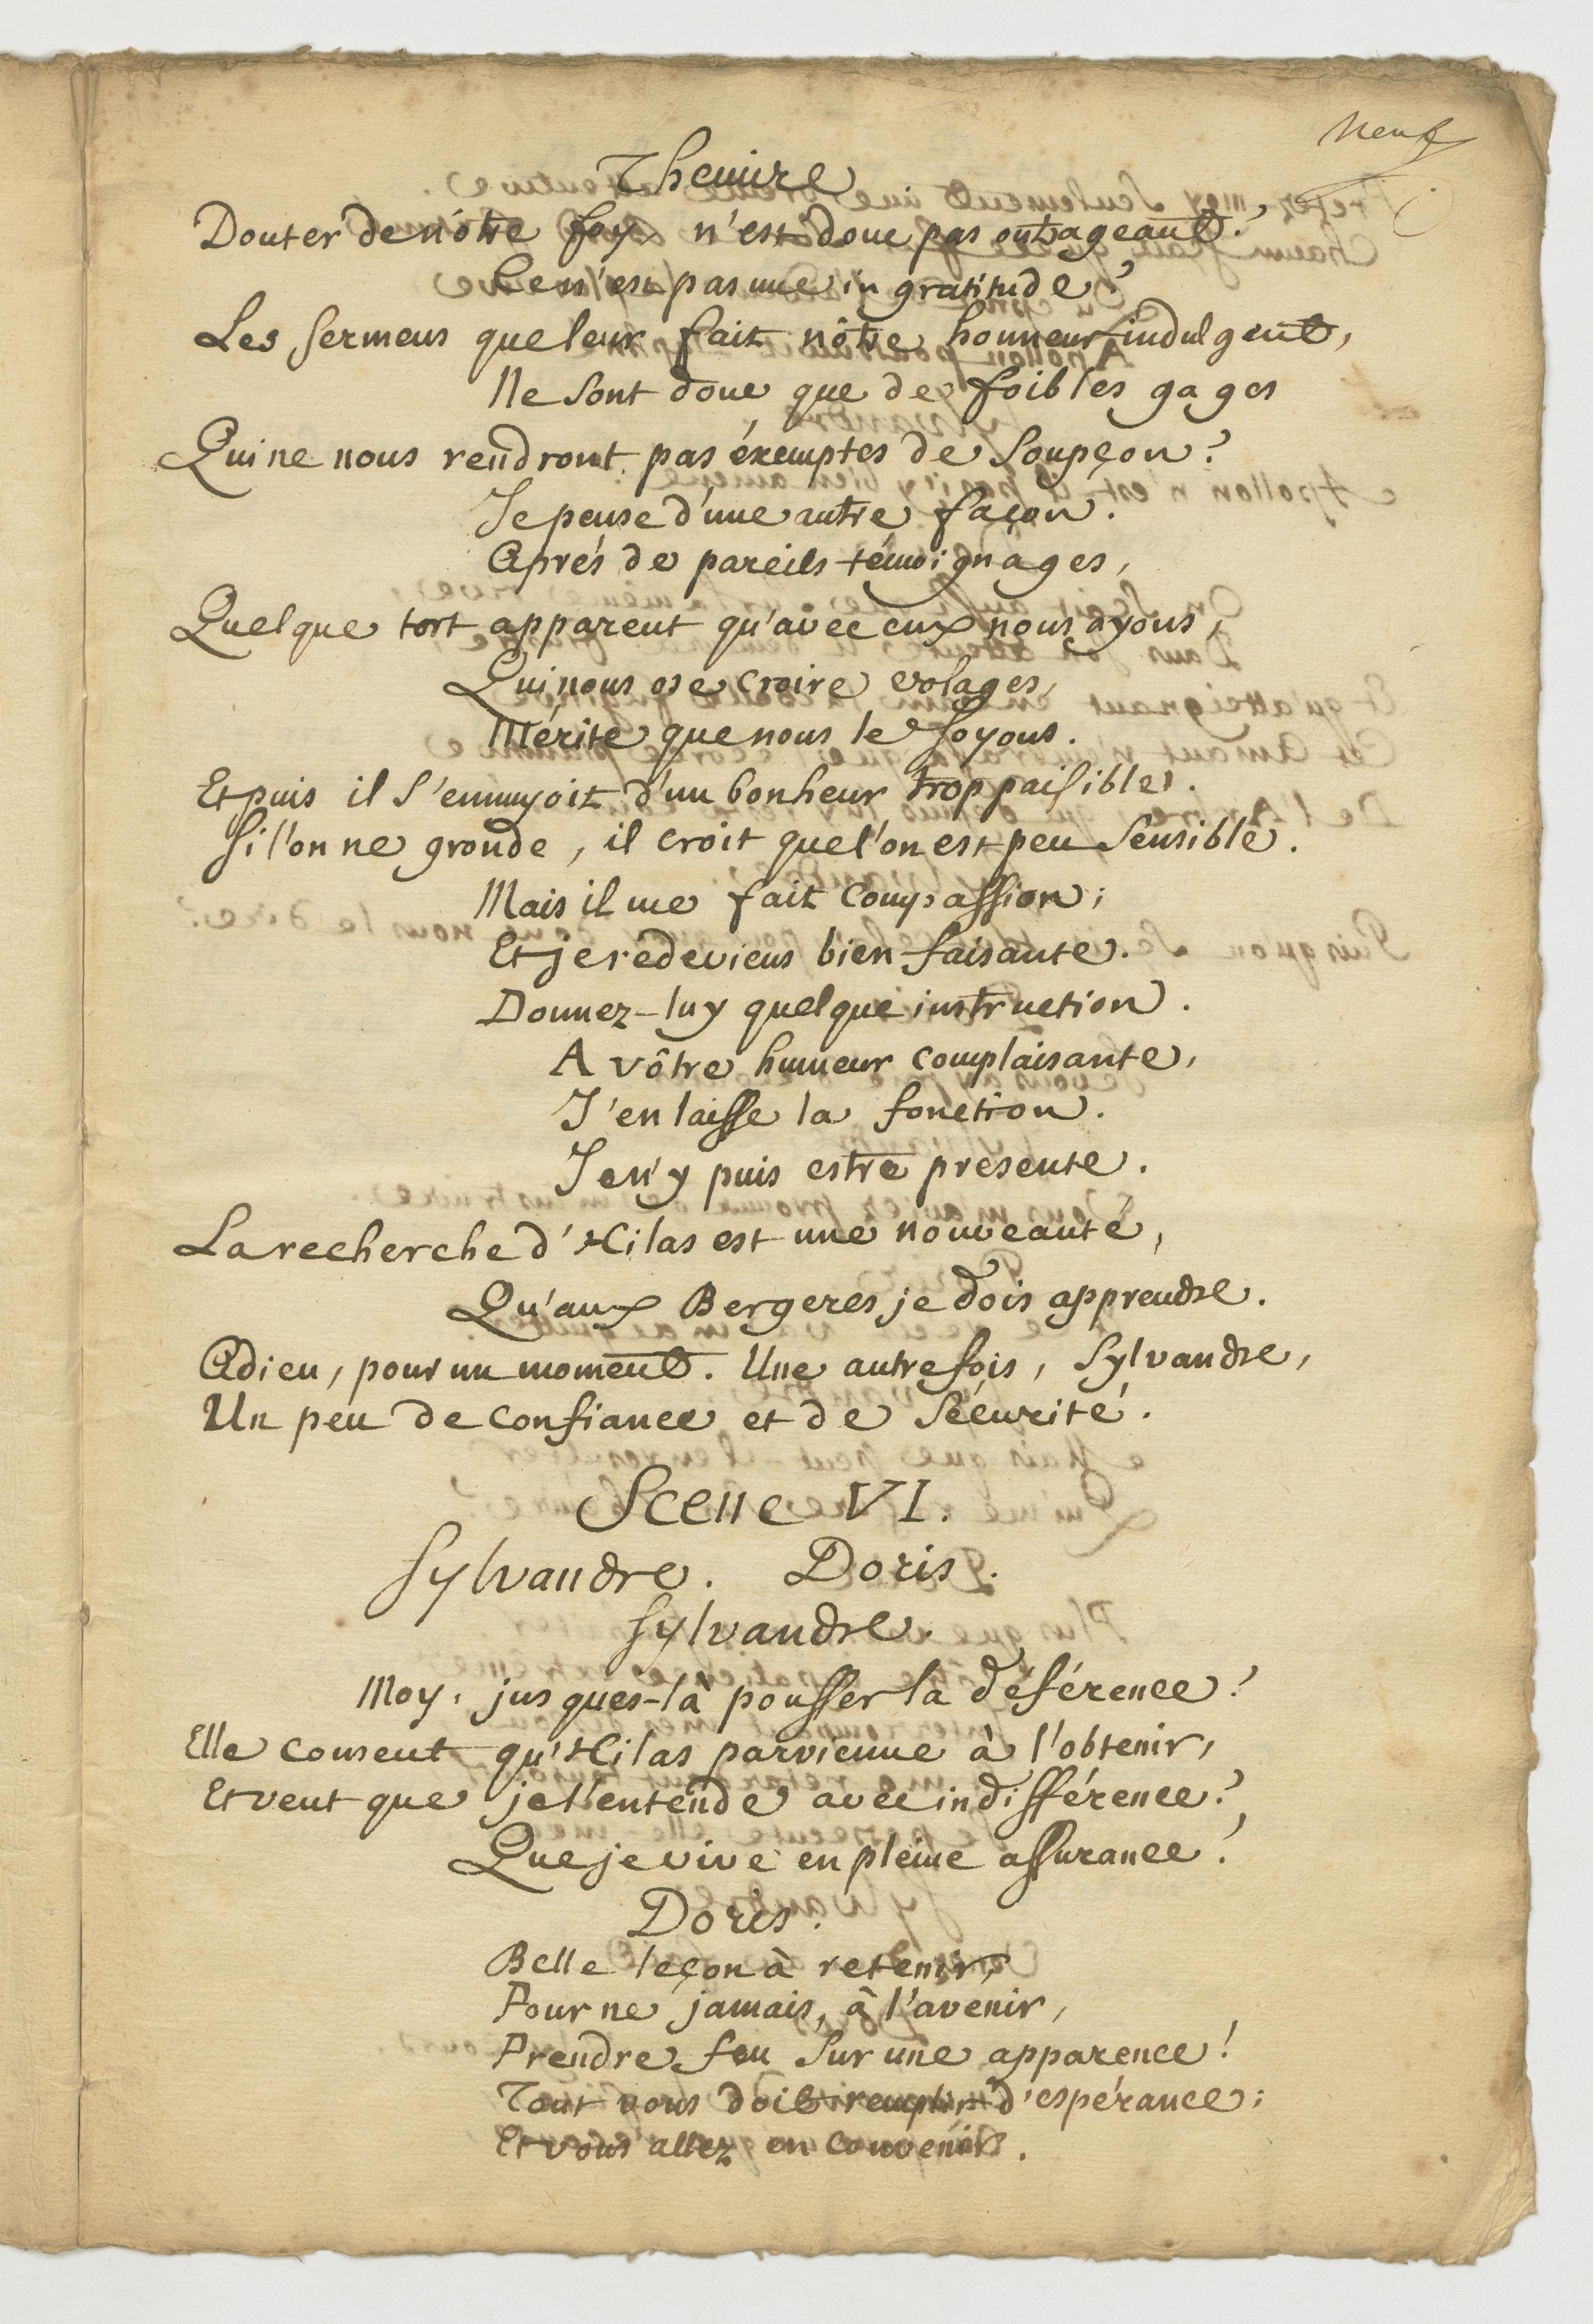 Neuf
Themire
Douter de nôtre foy n'est donc pas outrageant?
Ce n'est pas une ingratitude?
Les sermens que leur fait nôtre honneur indulgent,
Ne sont donc que de foibles gages
Qui ne nous rendront pas éxemptes de soupçon?
Je pense d'une autre façon.
Aprés de pareils témoignages,
Quelque tort apparent qu'avec eux nous ayons,
Qui nous ose croire volages,
Mérite que nous le soyons.
Et puis il s'ennuyoit d'un bonheur trop paisible.
Si l'on ne gronde, il croit que l'on est peu sensible.
Mais il me fait compassion;
Et je redeviens bien-faisante.
Donnez-luy quelque instruction.
A vôtre humeur complaisante,
J'en laisse la fonction.
Je n'y puis estre presente.
La recherche d'Hilas est une nouveauté,
Qu'aux Bergeres je dois apprendre.
Adieu, pour un moment. Une autre fois, Sylvandre,
Un peu de confiance et de sécurité.
Scene VI.
Sylvandre. Doris.
Sylvandre.
Moy, jusques-là pousser la déférence?
Elle consent qu'Hilas parvienne à l'obtenir,
Et veut que je l'entende avec indifférence?
Que je vive en pleine assurance?
Doris.
Belle leçon à retenir,
Pour ne jamais, à l'avenir,
Prendre feu sur une apparence!
Tout vous doit remplir d'espérance;
Et vous allez en convenir.